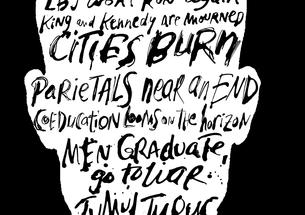 LBJ WON'T RUN again
King and Kennedy are MOURNED
CITIES BURN
PARIETALS near an END
COEDUCATION LOOMS on the horizon
MEN GRADUATE,
go to WAR
TUMULTUOUS